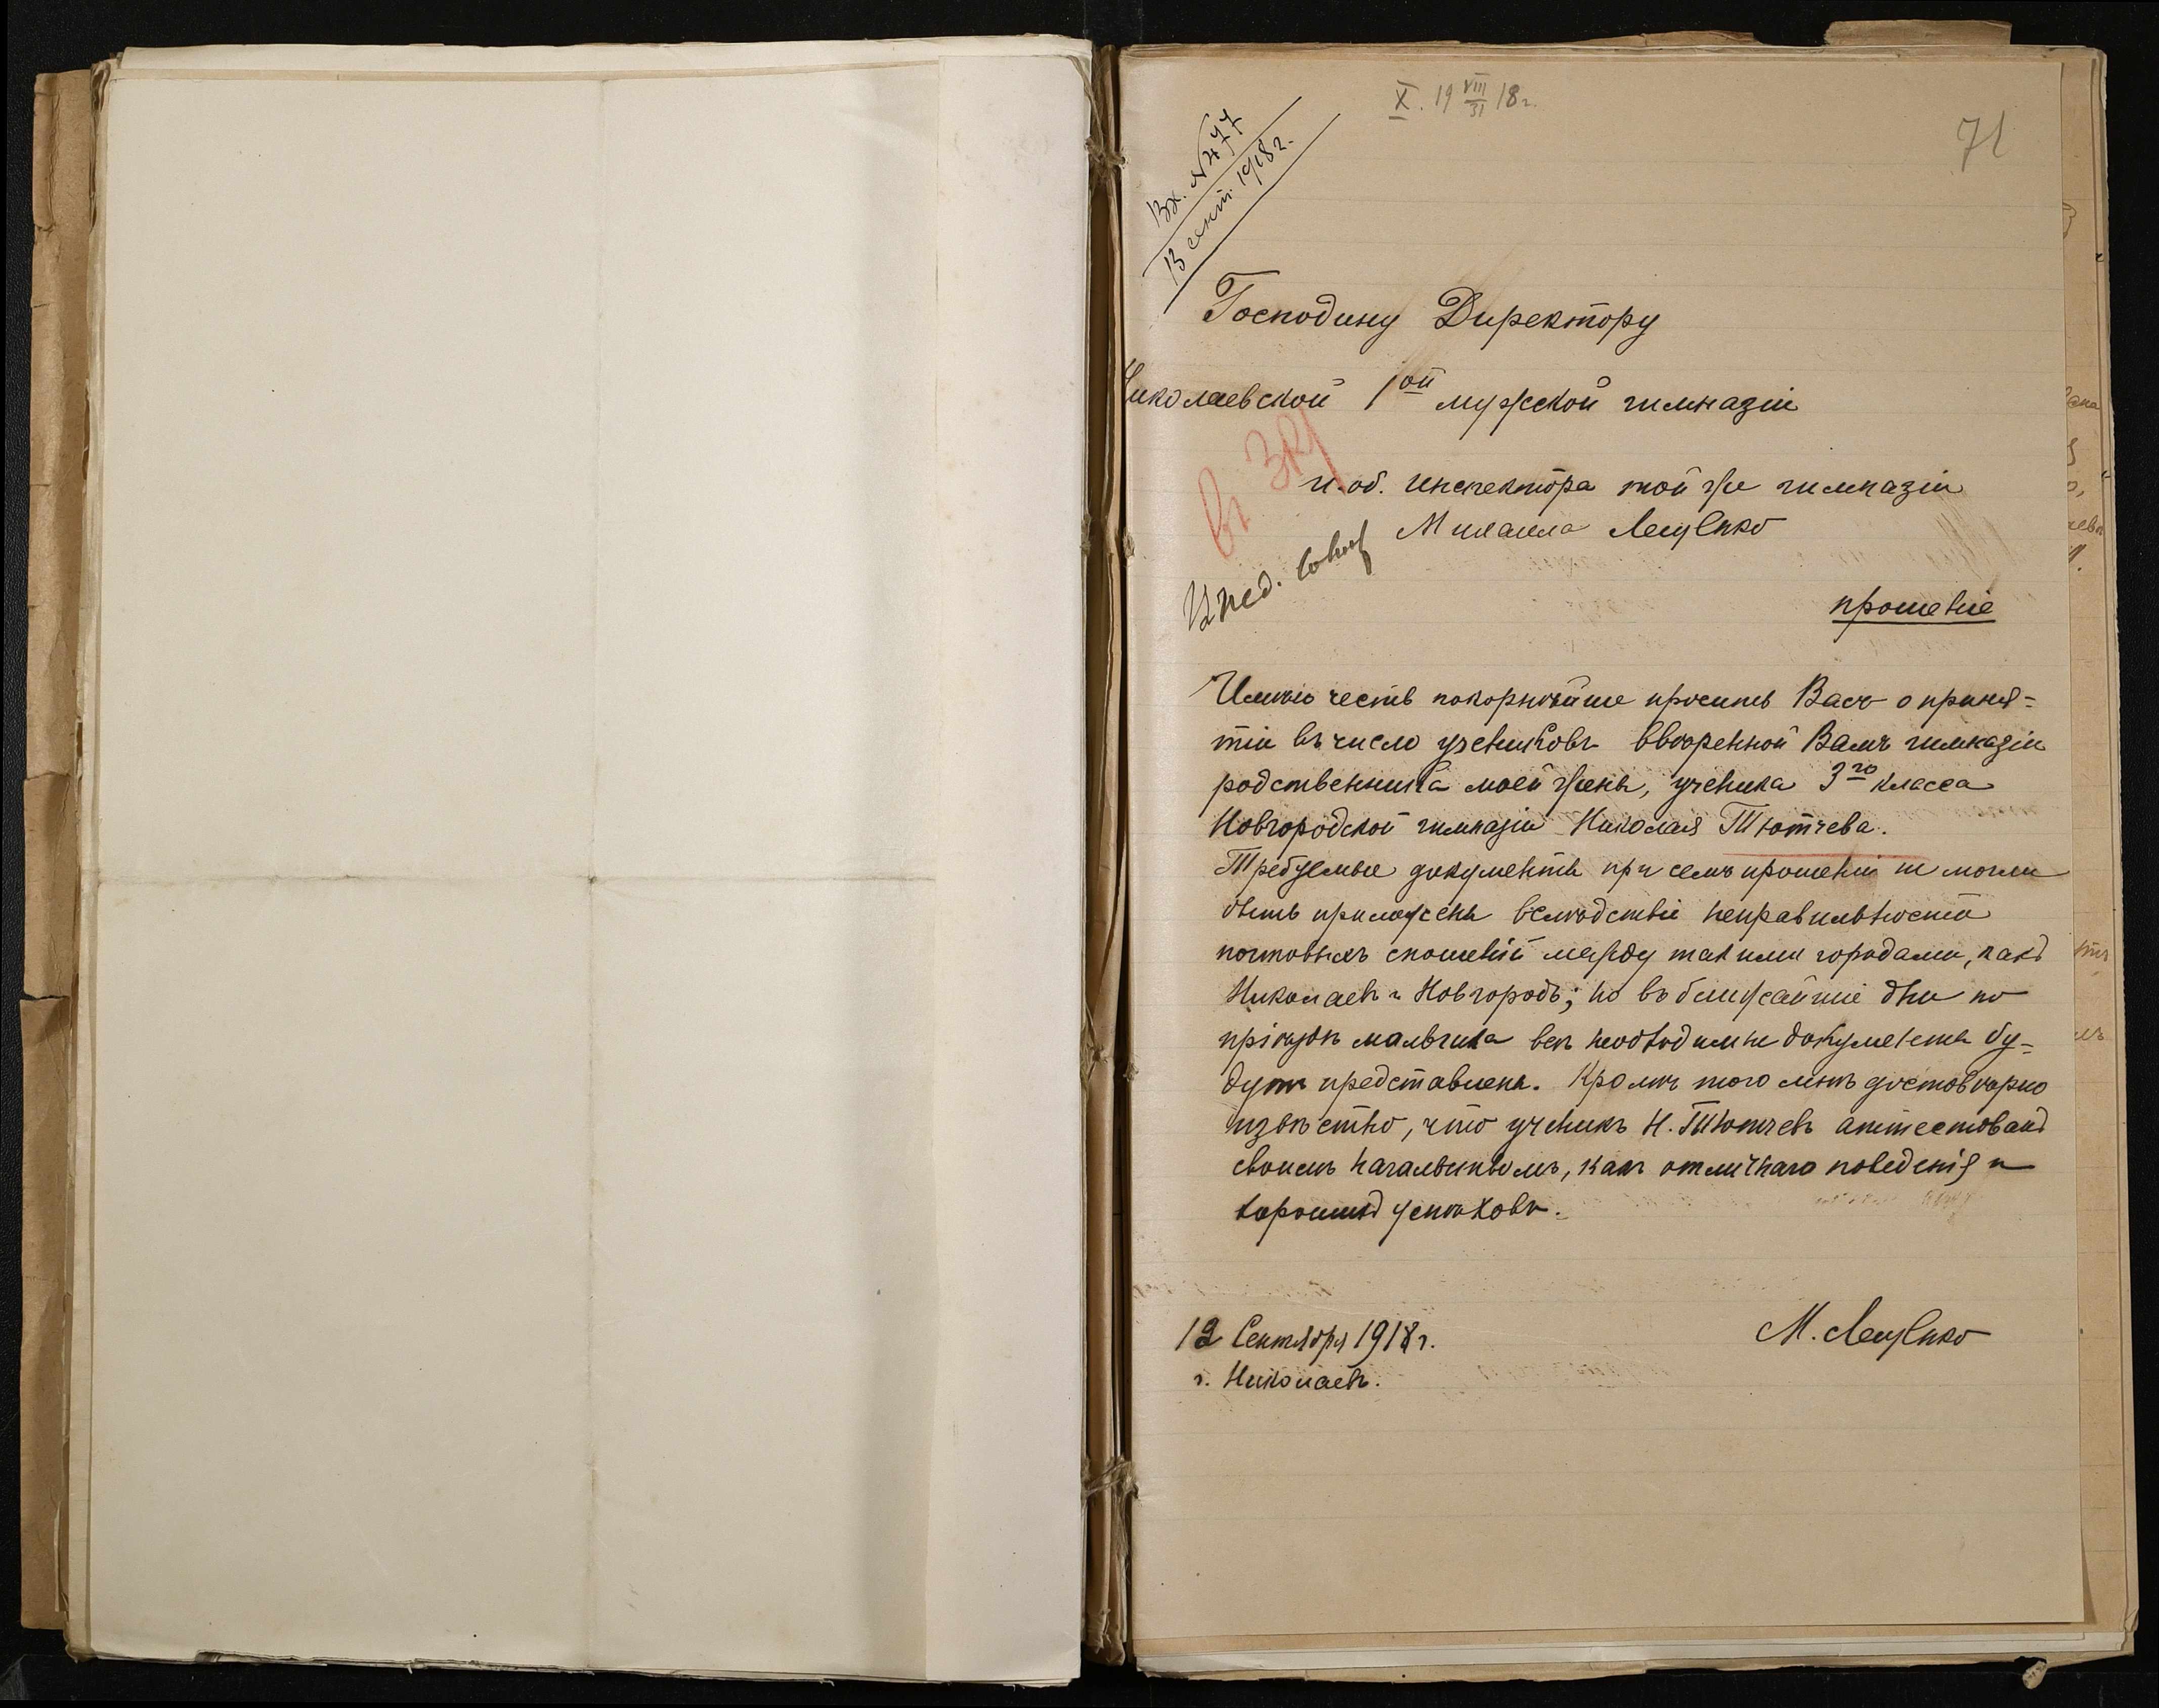 X. 19 VIII/31 18 г.
71
Вх. № 477
13 сент. 1918 г.
Господину Директору
Николаевской 1ой мужской гимназіи
въ 3 кл
и. об. инспектора той же гимназіи
Михаила Лещенко
пед.
прошеніе
Имѣю честь покорнѣйше просить Васъ о приня-
тіи въ число учениковъ ввѣренной Вамъ гимназіи
родственника моей жены, ученика 3го класса
Новгородской гимназіи Николая Тютчева.
Требуемые документы при семъ прошеніи не могли
быть приложены вслѣдствіе неправильности
почтовыхъ сношеній между такими городами, какъ
Николаевъ и Новгородъ; но въ ближайшіе дни по
пріѣздѣ мальчика всѣ необходимые документы бу-
дутъ представлены. Кромѣ того мнѣ достовѣрно
извѣстно, что ученикъ Н. Тютчевъ аттестованъ
своимъ начальствомъ, какъ отличнаго поведенія и
хорошихъ успѣховъ.
12 Сентября 1918 г.
М. Лещенко
г. Николаевъ.